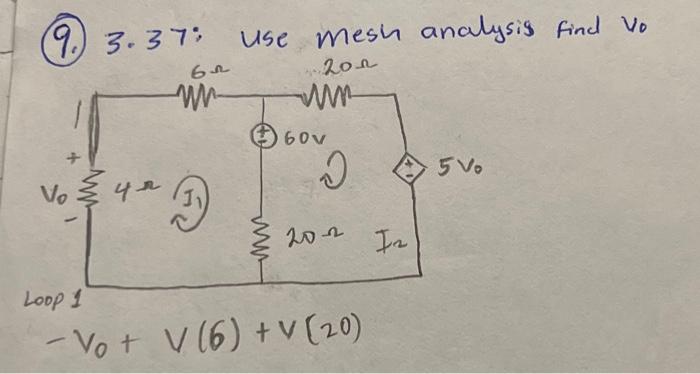 9. 3.37: use mesh analysis find Vo
6Ω 20Ω
+ 60V
+ 5Vo
Vo 4Ω I1
-
20Ω I2
Loop 1
-Vo + V(6) + V(20)